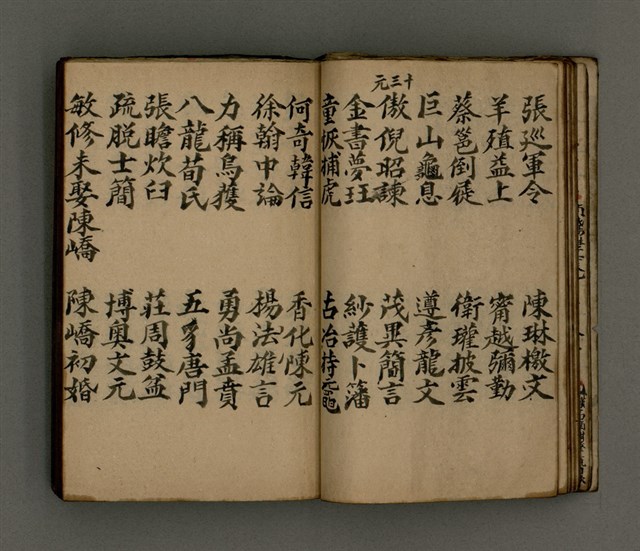 張巡軍令　陳琳檄文
羊殖益上　甯越彌勤
蔡邕倒屣　衛瓘披雲
巨山龜息　遵彥龍文
十三元
傲倪昭諫　茂異簡言
金書夢珏　紗護卜藩
童恢捕虎　古冶持黿
何奇韓信　香化陳元
徐幹中論　揚法雄言
力稱烏獲　勇尚孟賁
八龍荀氏　五豸唐門
張瞻炊臼　莊周鼓盆
疏脫士簡　博奧文元
敏修未娶陳嶠　陳嶠初婚